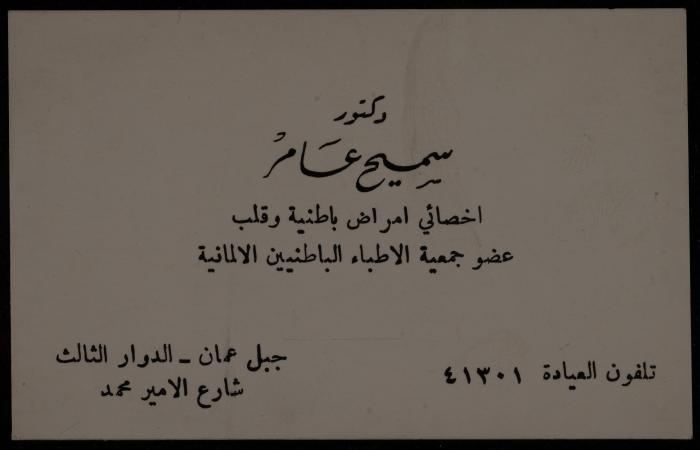 دكتور
سميح عامر
اخصائي امراض باطنية وقلب
عضو جمعية الاطباء الباطنيين الالمانية
تلفون العيادة ٤١٣٠١
جبل عمان ـ الدوار الثالث
شارع الامير محمد